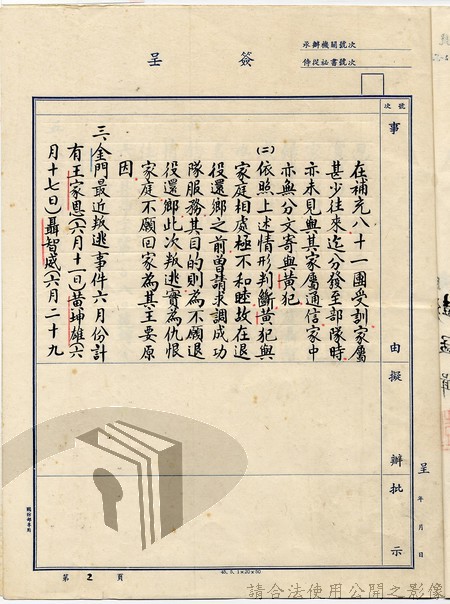 簽呈
承辦機關號次
侍從祕書號次
號次
事由擬辦批示
在補充八十一團受訓家屬
甚少往來迄分發至部隊時
亦未見與其家屬通信家中
亦無分文寄與黃犯
(二)依照上述情形判斷黃犯與
家庭相處極不和睦故在退
役還鄉之前曾請求調成功
隊服務其目的則為不願退
役還鄉此次叛逃實為仇恨
家庭不願回家為其主要原
因
三、金門最近叛逃事件六月份計
有王家恩(六月十一日)黃坤雄(六
月十七日)聶智威(六月二十九
呈 年 月 日
第 2 頁
請合法使用公開之影像